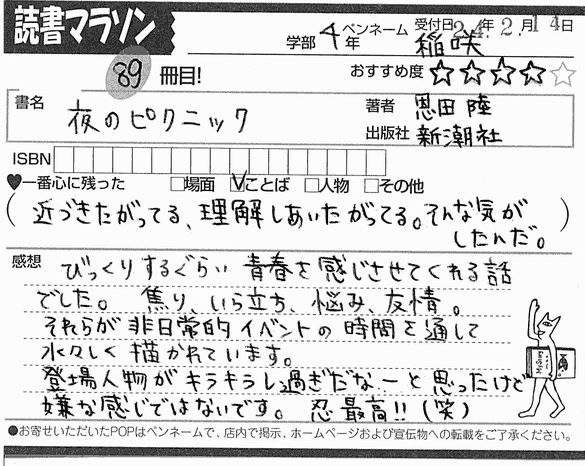 読書マラソン
学部 4年 ペンネーム 稲咲 受付日 24年2月14日
89冊目!
おすすめ度 ☆☆☆☆☆
書名 夜のピクニック
著者 恩田 陸
出版社 新潮社
ISBN
♥一番心に残った □場面 ☑ことば □人物 □その他
(近づきたがってる、理解しあいたがってる。そんな気が
したんだ。)
感想 びっくりするぐらい 青春を感じさせてくれる話
でした。 焦り、いら立ち、悩み、友情。
それらが非日常的イベントの時間を通して
水々しく描かれています。
登場人物がキラキラし過ぎだなーと思ったけど
嫌な感じではないです。 忍最高!!(笑)
●お寄せいただいたPOPはペンネームで、店内で掲示、ホームページおよび宣伝物への転載をご了承ください。